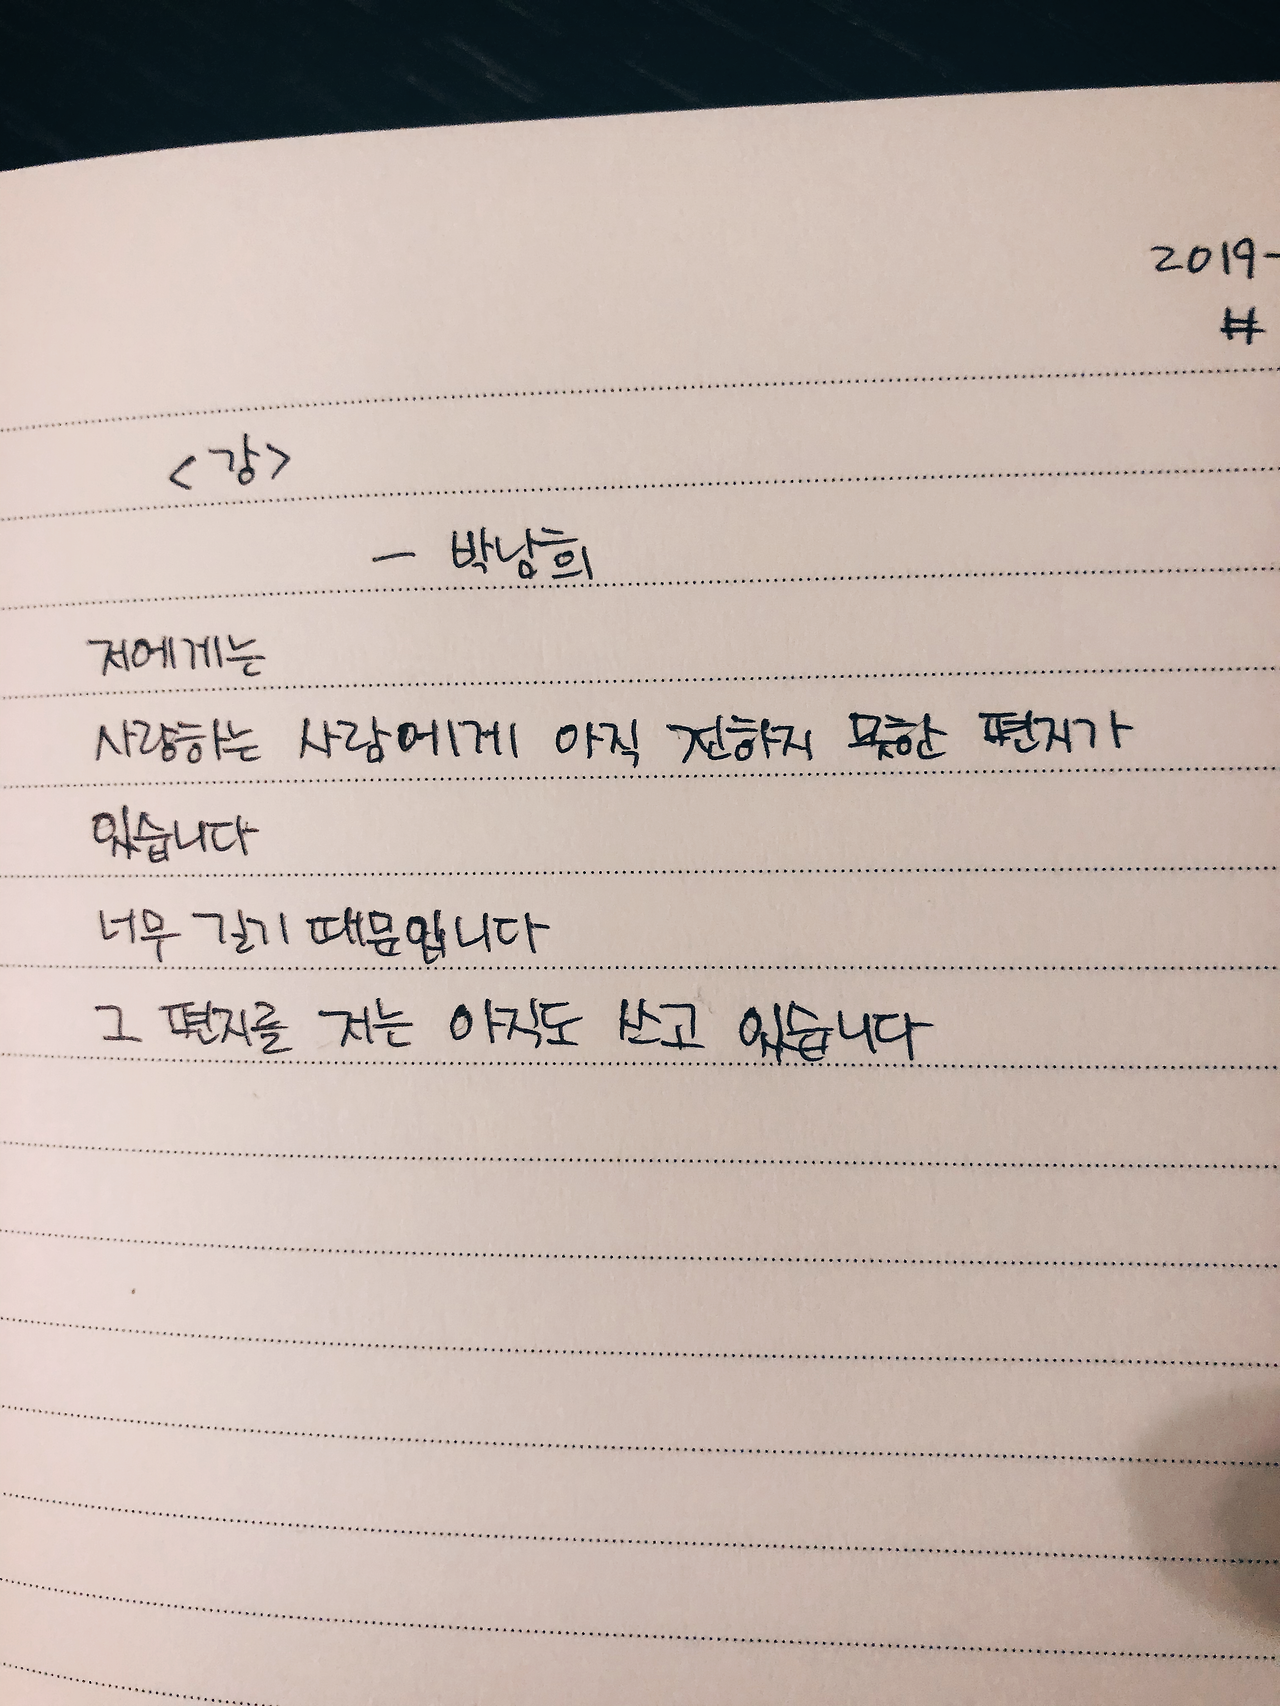 2019-
#
<강>
- 박남희
저에게는
사랑하는 사람에게 아직 전하지 못한 편지가
있습니다
너무 길기 때문입니다
그 편지를 저는 아직도 쓰고 있습니다